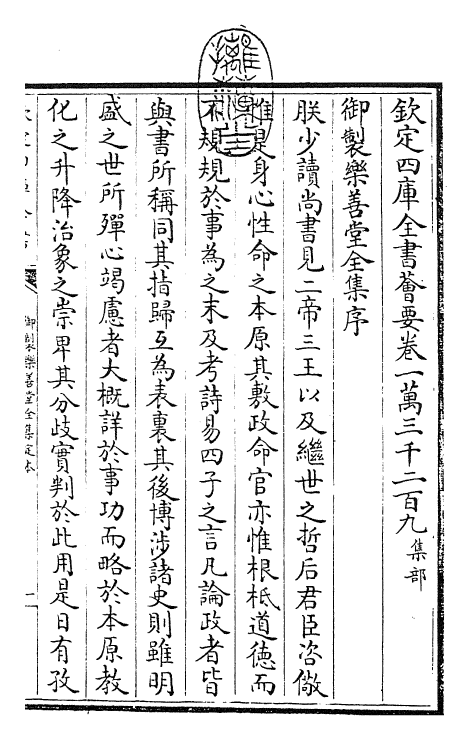 欽定四庫全書薈要卷一萬三千二百九 集部
御製樂善堂全集序
朕少讀尚書見二帝三王以及繼世之哲后君臣咨儆
惟是身心性命之本原其敷政命官亦惟根柢道德而
不規規於事為之末及考詩易四子之言凡論政者皆
與書所稱同其指歸互為表裏其後博涉諸史則雖明
盛之世所殫心竭慮者大概詳於事功而略於本原教
化之升降治象之崇卑其分歧實判於此用是日有孜
御製樂善堂全集定本
一